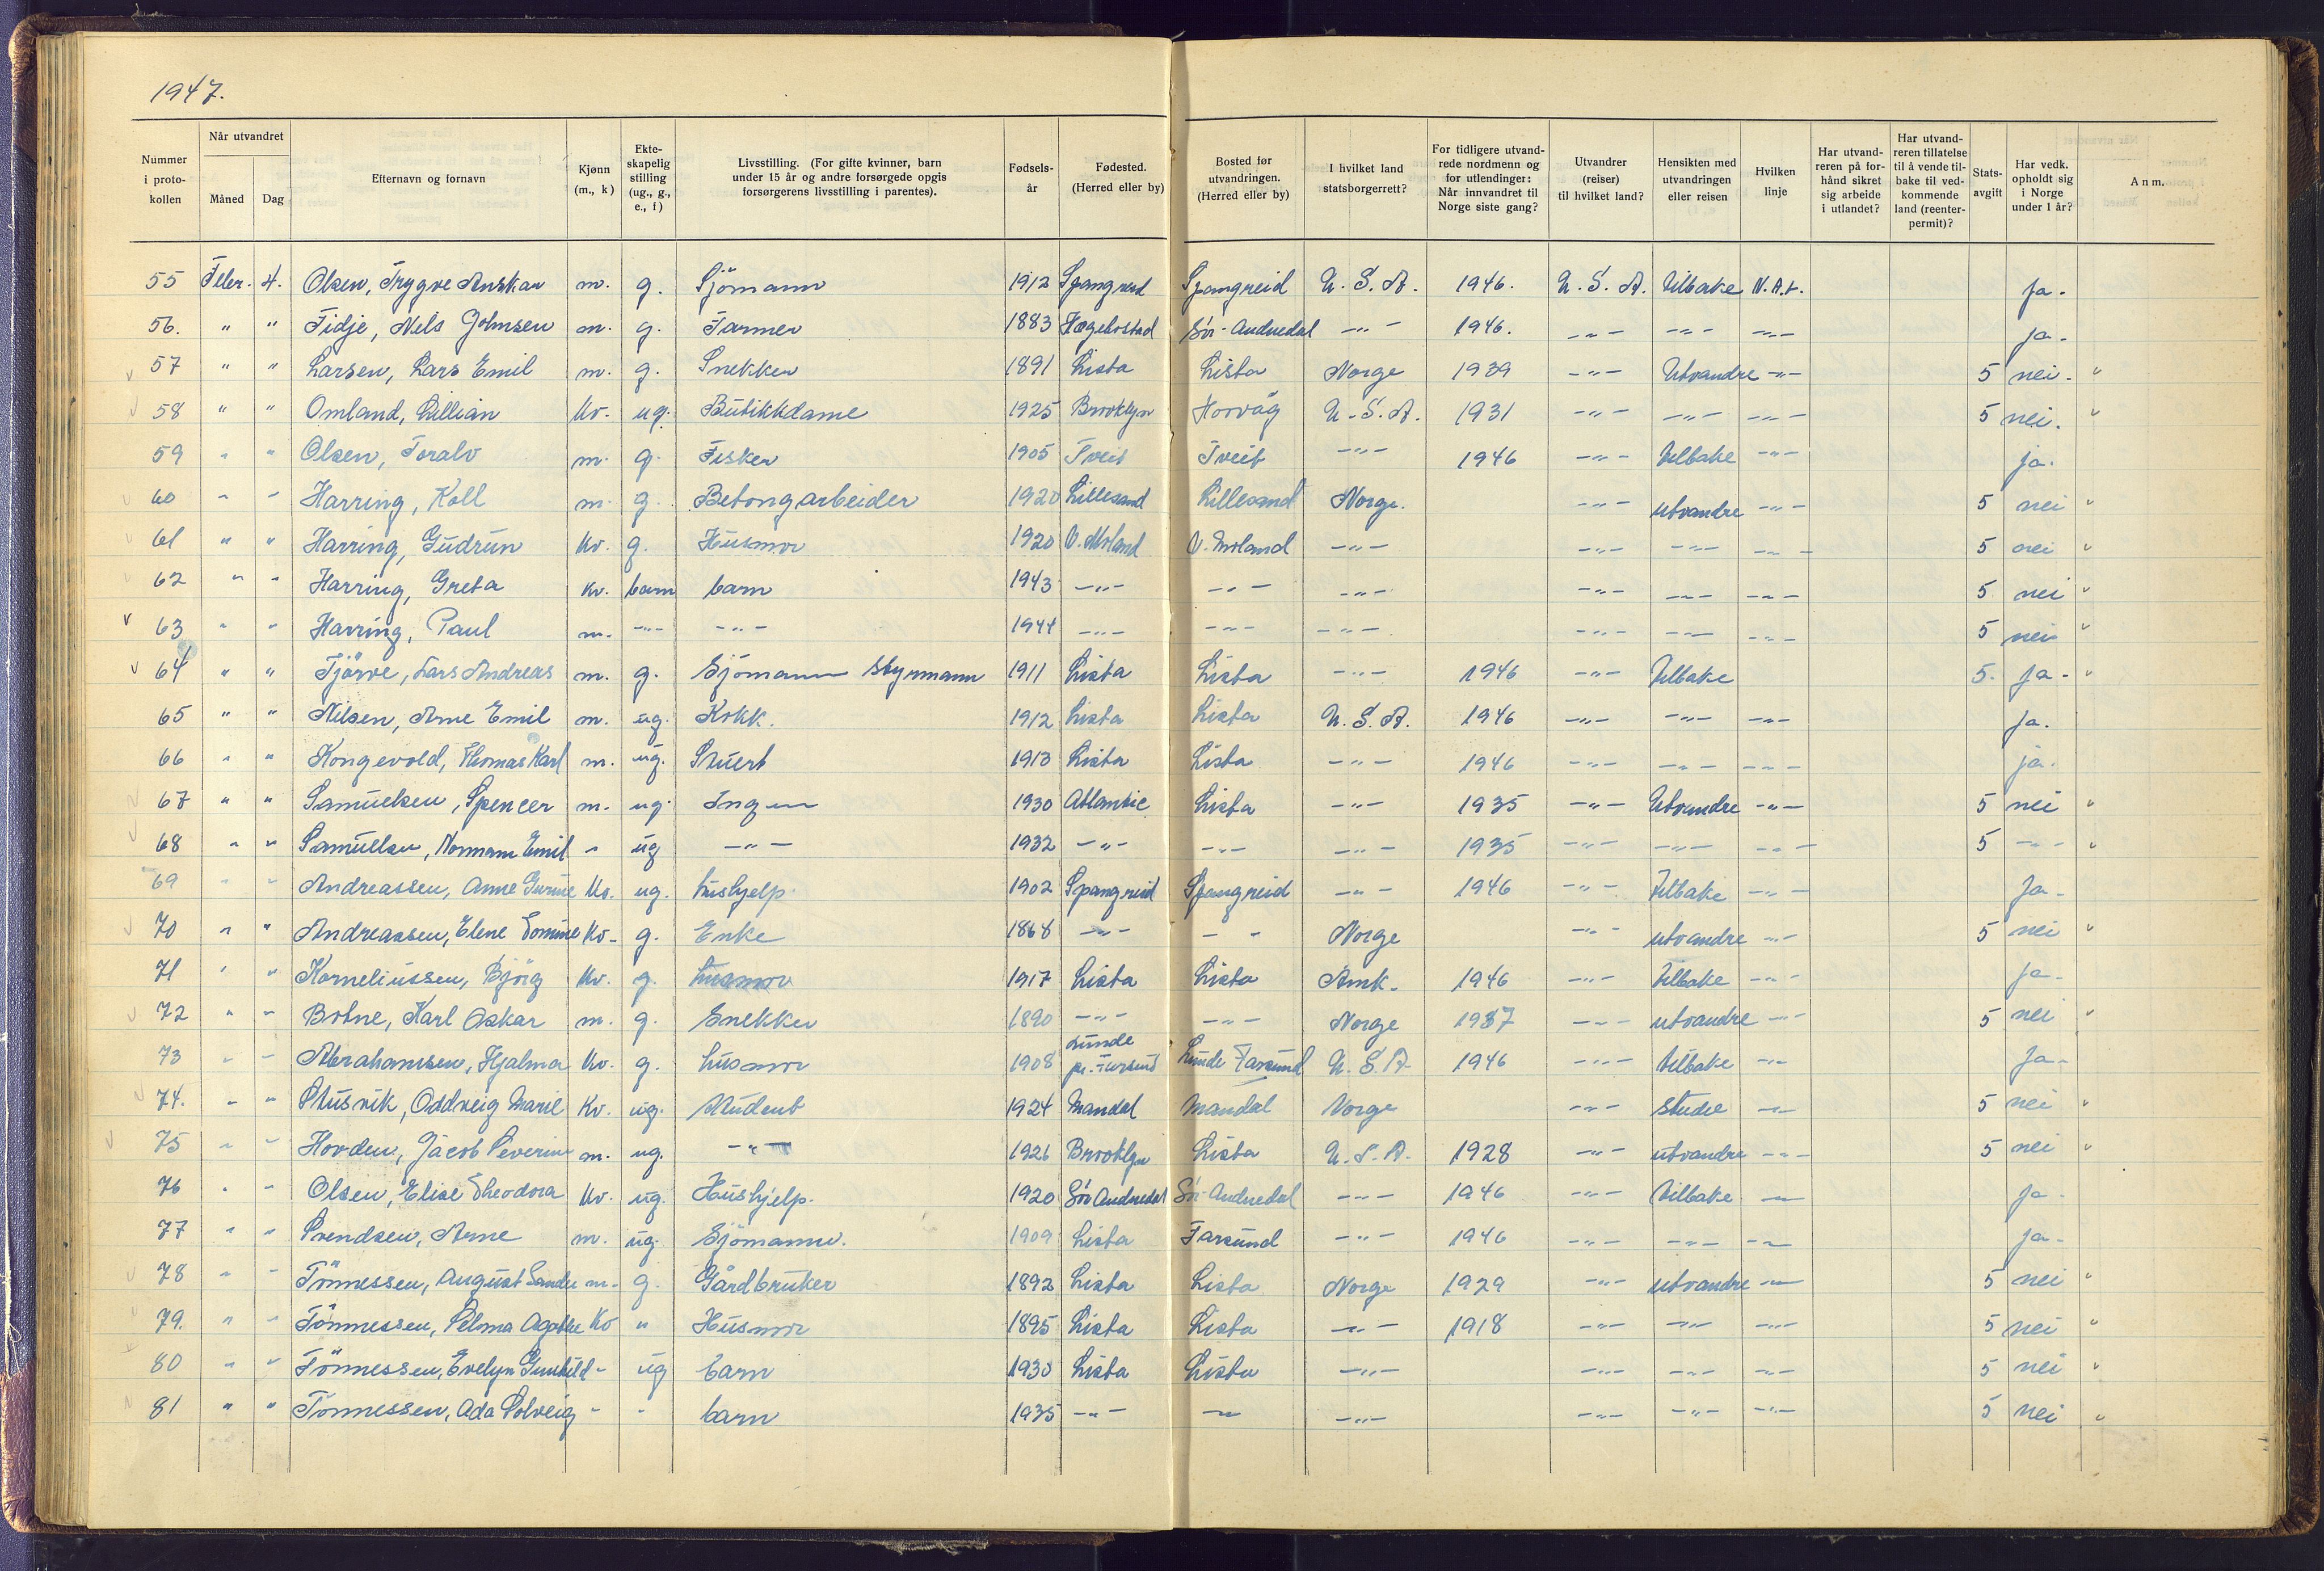 1947.
Nummer i proto-kollen | Når utvandret Måned Dag | Efternavn og fornavn | Kjønn (m., k) | Ekte-skapelig stilling (ug., g., e., f) | Livsstilling. (For gifte kvinner, barn under 15 år og andre forsørgede opgis forsørgerens livsstilling i parentes). | Fødsels-år | Fødested. (Herred eller by) | Bosted før utvandringen. (Herred eller by) | I hvilket land statsborgerrett? | For tidligere utvand-rede nordmenn og for utlendinger: Når innvandret til Norge siste gang? | Utvandrer (reiser) til hvilket land? | Hensikten med utvandringen eller reisen | Hvilken linje | Har utvand-reren på for-hånd sikret sig arbeide i utlandet? | Har utvand-reren tillatelse til å vende til-bake til ved-kommende land (reenter-permit)? | Stats-avgift | Har vedk. opholdt sig i Norge under 1 år? | Anm.
55 Feber. 4. Olsen, Trygve Anskar m. g. Sjömann 1912 Spangreid Spangreid U.S.A. 1946. U.S.A. tilbake N.A.L. ja.
56. " " Fidje, Nels Johnsen m. g. Farmer 1883 Hægebostad Sör-Audnedal -"- 1946. -"- -"- -"- ja.
57 " " Larsen, Lars Emil m. g. Snekker 1891 Lista Lista Norge 1939 -"- Utvandre -"- 5 nei.
58 " " Omland, Lillian kv. ug. Butikkdame 1925 Brooklyn Hövåg U.S.A. 1931 -"- -"- -"- 5 nei.
59 " " Olsen, Toralv m. g. Fisker 1905 Tveit Tveit -"- 1946 -"- tilbake -"- ja.
60 " " Harring, Koll m. g. Betongarbeider 1920 Lillesand Lillesand Norge. -"- utvandre -"- 5 nei
61 " " Harring, Gudrun kv. g. Husmor 1920 V. Moland V. Moland -"- -"- -"- -"- 5 nei
62 " " Harring, Greta kv. barn barn 1943 -"- -"- -"- -"- -"- -"- 5 nei
63 " " Harring, Paul m. -"- -"- 1944 -"- -"- -"- -"- -"- -"- 5 nei
64 " " Tjörve, Lars Andreas m. g. Sjömann Styrmann 1911 Lista Lista -"- 1946 -"- tilbake 5. ja.
65 " " Nilsen, Arne Emil m. ug. Kokk. 1912 Lista Lista U.S.A. 1946 -"- -"- -"- ja.
66 " " Kongevold, Thomas Karl m. ug. Stuert 1913 Lista Lista -"- 1946 -"- -"- -"- ja.
67 " " Samuelsen, Spencer m. ug. Ingen 1930 Atlantic Lista -"- 1935 -"- Utvandre -"- 5 nei
68 " " Samuelsen, Normann Emil " ug -"- 1932 -"- -"- -"- 1935 -"- -"- -"- 5 -"-
69 " " Andreassen, Anne Gurine kv. ug. hushjelp. 1902 Spangreid Spangreid -"- 1946 -"- tilbake -"- Ja.
70 " " Andreassen, Elene Tomine kv. g. Enke 1868 -"- -"- Norge -"- utvandre -"- 5 nei
71 " " Korneliussen, Björg kv. g. husmor 1917 Lista Lista Amk. 1946 -"- tilbake -"- ja.
72 " " Botne, Karl Oskar m. g. Snekker 1890 -"- -"- Norge 1937 -"- utvandre -"- 5 nei
73 " " Abrahamsen, Hjalma kv. g. husmor 1908 Lunde pr. Farsund Lunde Farsund U.S.A. 1946 -"- tilbake -"- Ja.
74. " " Stusvik, Oddveig Marie kv. ug. Student 1924 Mandal Mandal Norge -"- studie -"- 5 nei
75 " " Hovden, Jacob Severin m. ug. -"- 1926 Brooklyn Lista U.S.A. 1928 -"- utvandre -"- 5 nei
76 " " Olsen, Elise Theodora kv. ug. Hushjelp. 1920 Sör Audnedal Sör-Audnedal -"- 1946 -"- tilbake -"- ja.
77 " " Svendsen, Arne m. ug. Sjömann. 1909 Lista Farsund -"- 1946 -"- -"- -"- ja.
78 " " Tönnessen, August Sander m. g. Gårdbruker 1892 Lista Lista Norge 1929 -"- utvandre -"- 5 nei
79. " " Tönnessen, Selma Agathe kv " Husmor 1895 Lista Lista -"- 1918 -"- -"- -"- 5 nei
80 " " Tönnessen, Evelyn Gunhild " ug barn 1930 Lista Lista -"- -"- -"- -"- 5 nei
81 " " Tönnessen, Ada Solveig " " barn 1935 -"- -"- -"- -"- -"- -"- 5 nei